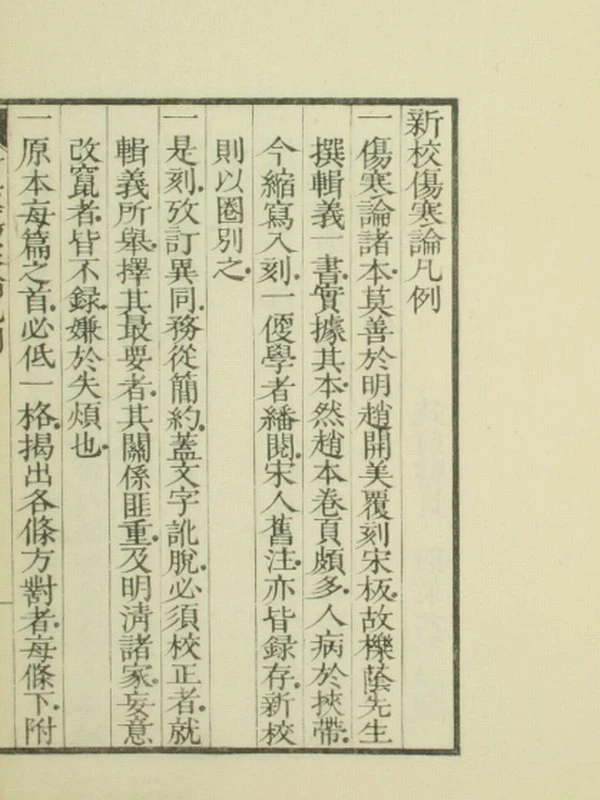 新校傷寒論凡例
一傷寒論諸本莫善於明趙開美覆刻宋板故櫟蔭先生
撰輯義一書實據其本然趙本卷頁頗多人病於挾帶
今縮寫入刻一便學者繙閱宋人舊注亦皆録存新校
則以圈別之
一是刻攷訂異同務從簡約蓋文字訛脫必須校正者就
輯義所舉擇其最要者其關係匪重及明淸諸家妄意
改竄者皆不録嫌於失煩也
一原本每篇之首必低一格揭出各條方對者每條下附